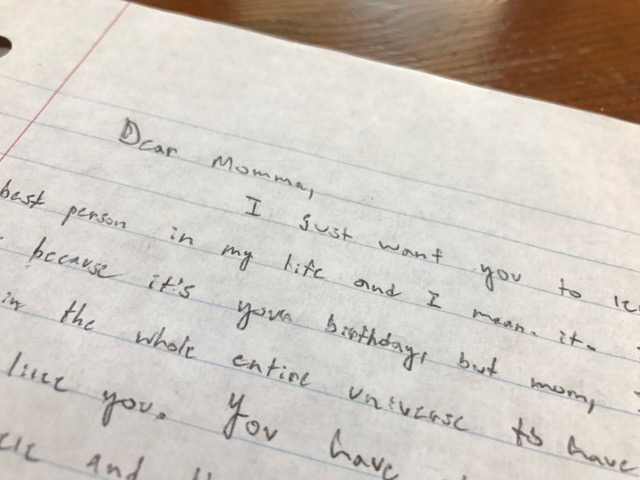 Dear Momma,
I just want you to
best person in my life and I mean it.
because it's your birthday, but mom,
in the whole entire universe to have
like you. You have
and